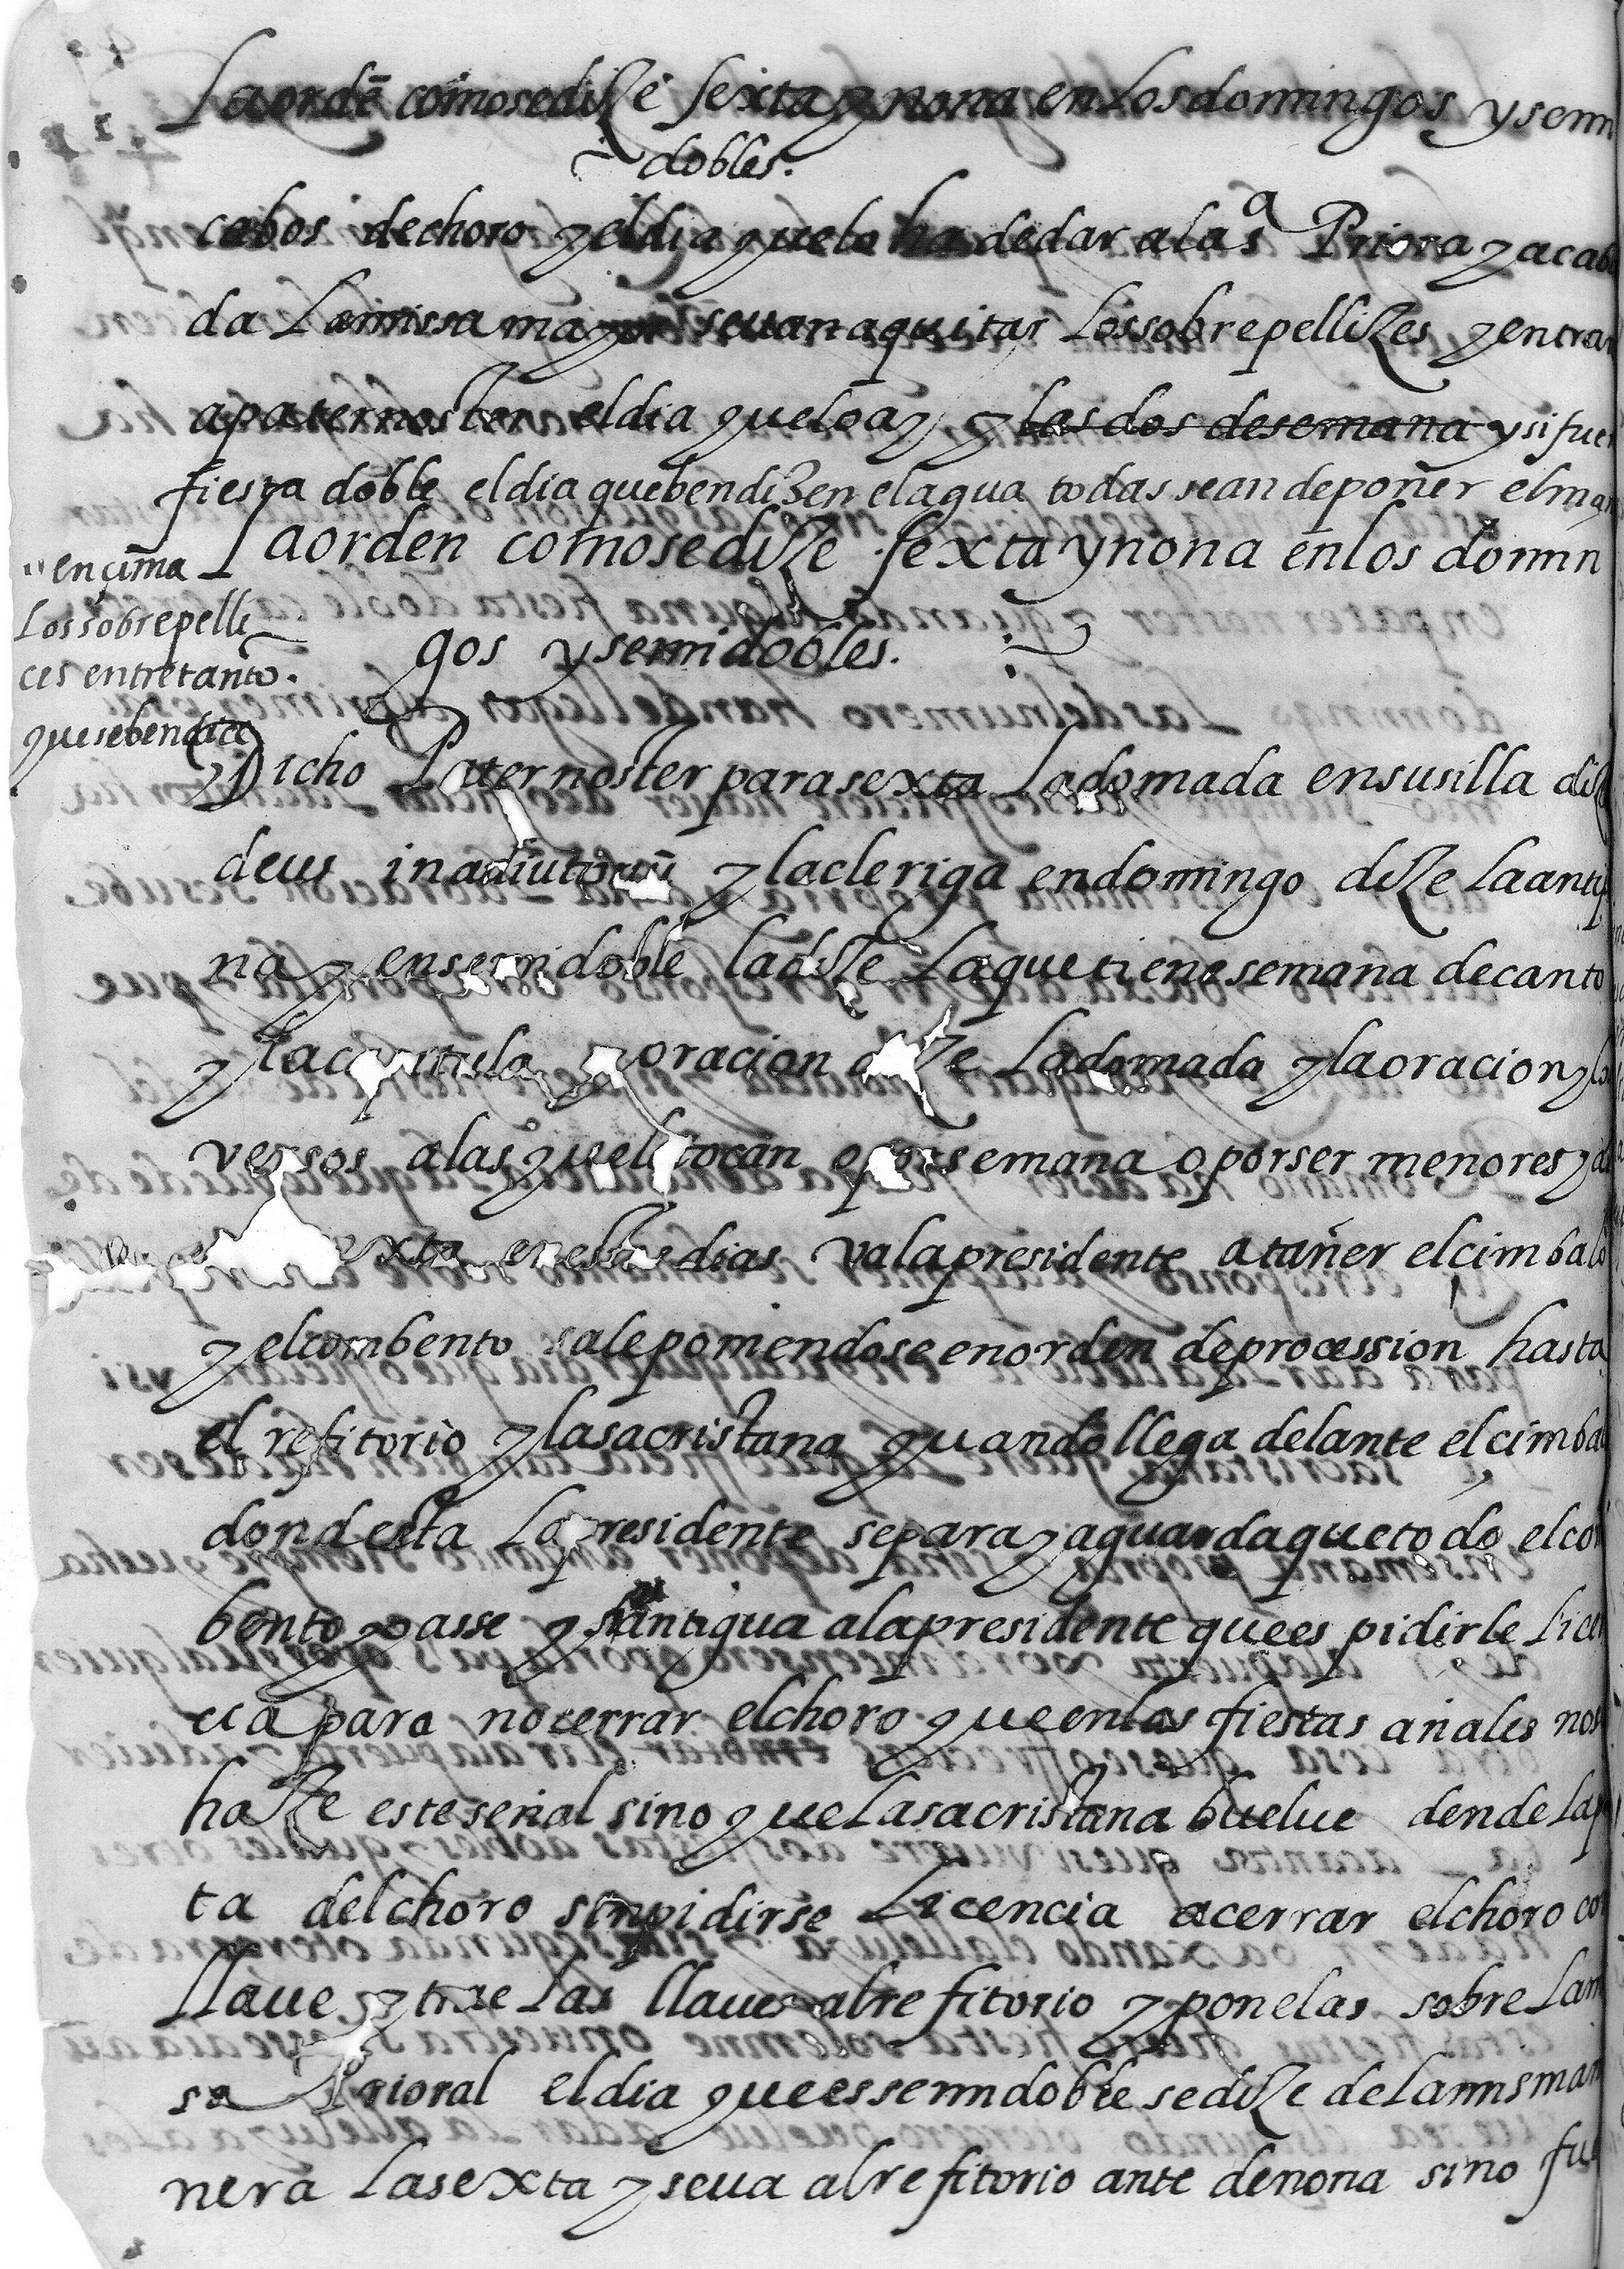 La ordē como se dize sexta y nona en los domingos y semi
dobles.
cabos de choro y el dia que lo ha de dar a la sª Priora y acaba
da la missa mayor se uan a quitar los sobrepellizes y entran
a paternoster el dia que lo ay y las dos de semana y si fuere
fiesta doble el dia que bendizen el agua todas se an de poner el man
La orden como se dize sexta y nona en los domin
gos y semidobles.
"en çima
Los sobrepelli
ces entretanto.
que se bendice
Dicho Paternoster para sexta la domada en su silla dize
deus in adiutoriū y la cleriga en domingo dize la antipho
na y en semidoble la dize la que tiene semana de canto
y la capitula y oracion dize la domada y la oracion y los
versos a las que les tocan o por semana o por ser menores y
sexta en estos dias va la presidente a tañer el cimbalo
y el combento sale poniendose en orden de procession hasta
el refitorio y la sacristana quando llega delante el cimbalo
donde esta la presidente se para y aguarda que todo el con
bento passe y santigua a la presidente que es pidirle licen
cia para no cerrar el choro que en las fiestas añales no se
haze este señal sino que la sacristana buelue dende la pu
ta del choro sin pidirse licencia a cerrar el choro con
llaue y trae las llaues al refitorio y ponelas sobre la me
sa Prioral el dia que es semidoble se dize de la misma ma
nera la sexta y se ua al refitorio ante de nona si no fue